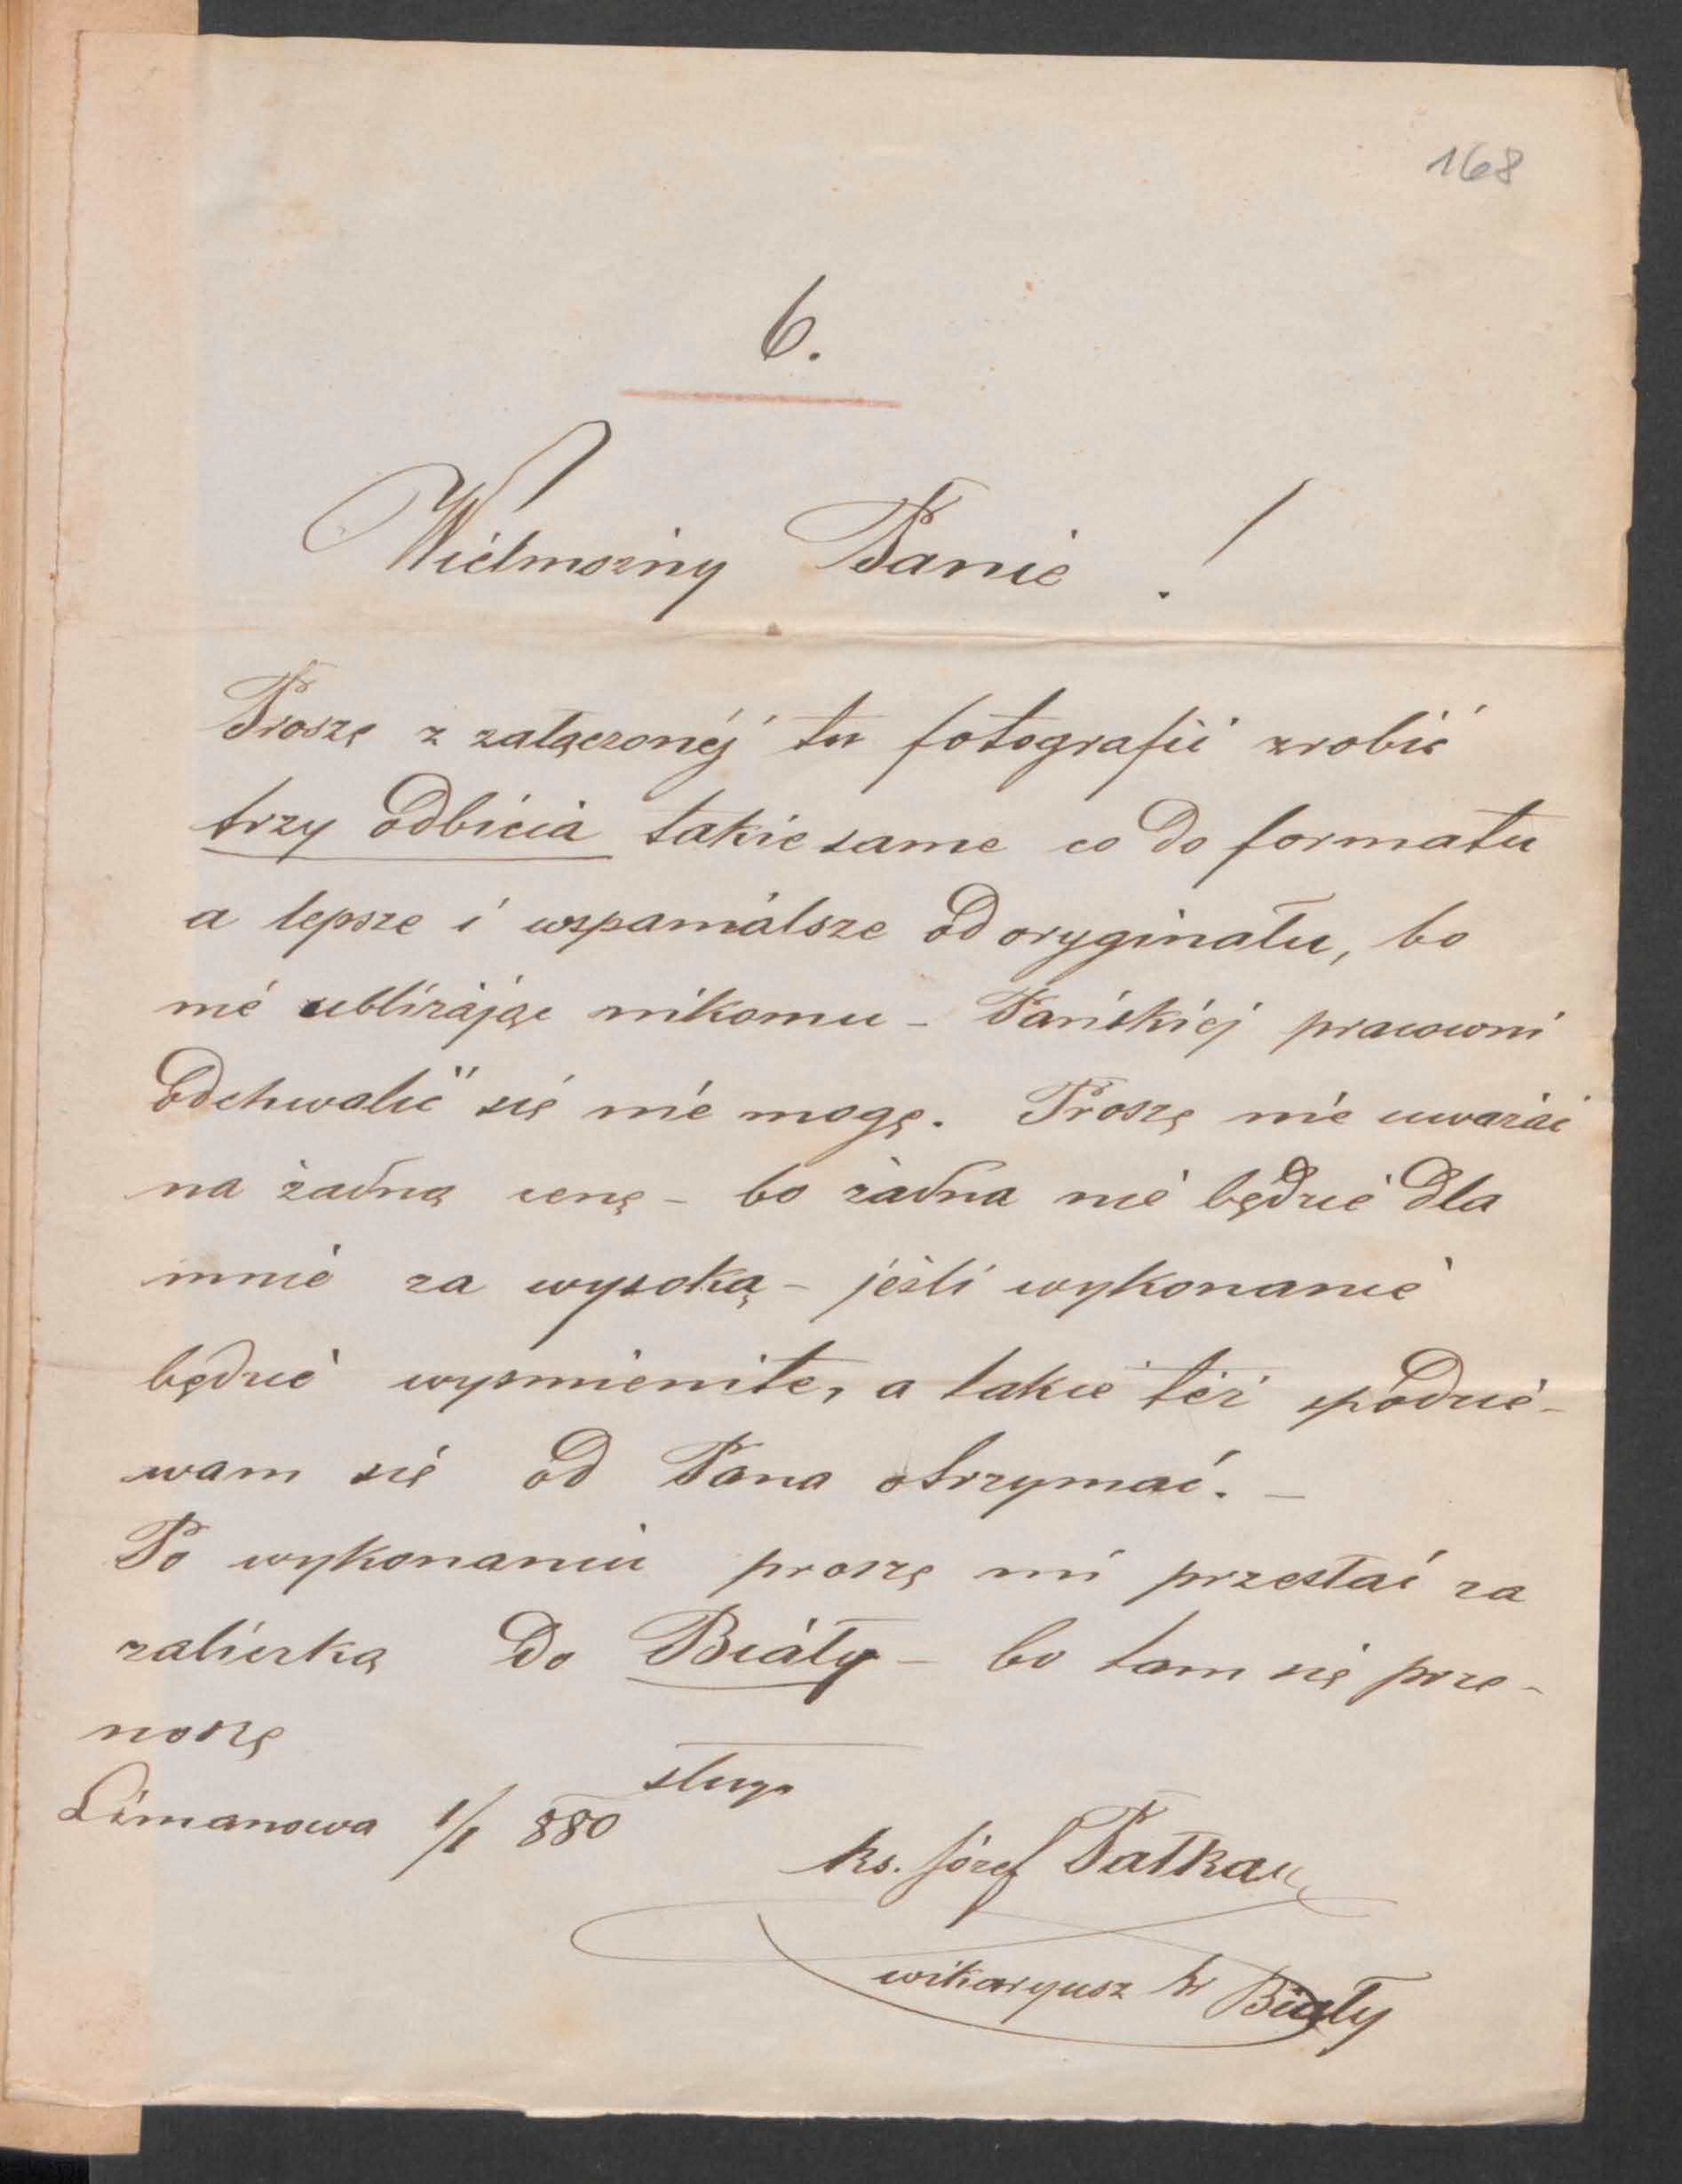 168
6.
Wielmożny Panie !
Proszę z załączonéj tu fotografii zrobić
trzy odbicia takie same co do formatu
a lepsze i wspanialsze od oryginału, bo
nie ubliżając nikomu - Pańskiéj pracowni
odchwalić się nie mogę. Proszę nie uważać
na żadną cenę - bo żadna nie będzie dla
mnie za wysoką - jeśli wykonanie
będzie wyśmienite, a takie też spodzie-
wam się od Pana otrzymać. -
Po wykonaniu proszę mi przesłać za
zaliczką do Biały - bo tam się prze-
noszę
sługa
Limanowa 1/1 880
ks. Józef Pałka
wikaryusz w Biały